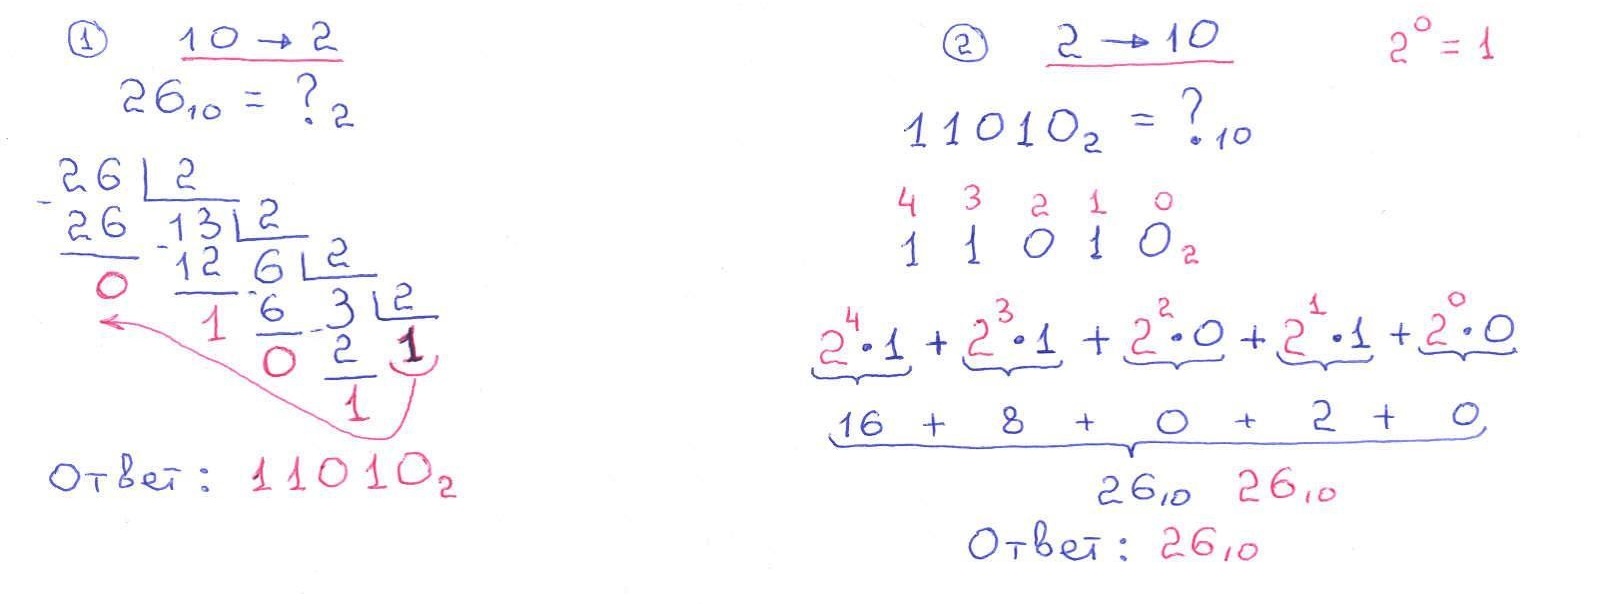 ① 10 → 2
26₁₀ = ?₂
26 2
- 26 13 2
0 - 12 6 2
1 - 6 3 2
0 - 2 1
1
Ответ: 11010₂
② 2 → 10
2⁰ = 1
11010₂ = ?₁₀
4 3 2 1 0
1 1 0 1 0₂
2⁴·1 + 2³·1 + 2²·0 + 2¹·1 + 2⁰·0
16 + 8 + 0 + 2 + 0
26₁₀ 26₁₀
Ответ: 26₁₀